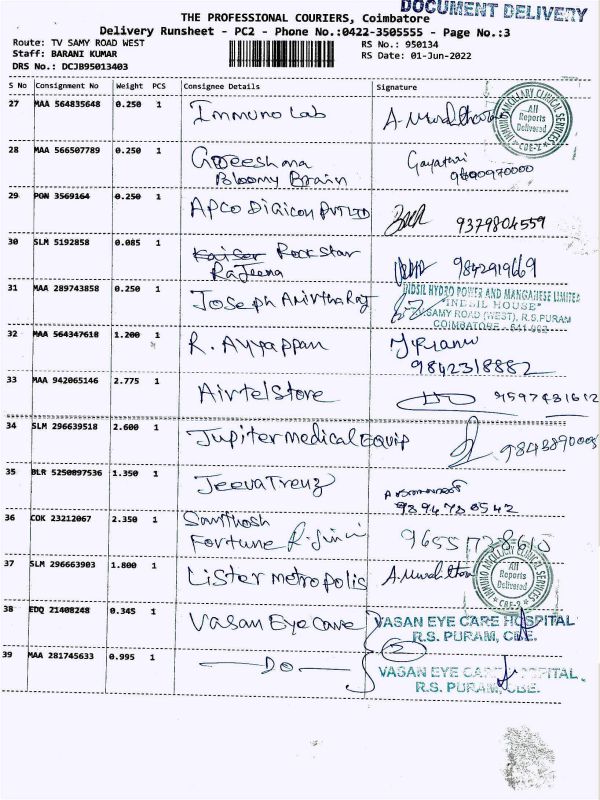 DOCUMENT DELIVERY
THE PROFESSIONAL COURIERS, Coimbatore
Delivery Runsheet - PC2 - Phone No.:0422-3505555 - Page No.:3
Route: TV SAMY ROAD WEST
RS No.: 950134
Staff: BARANI KUMAR
RS Date: 01-Jun-2022
DRS No.: DCJB95013403
S No Consignment No Weight PCS Consignee Details Signature
27 MAA 564835648 0.250 1 Immuno Lab
IMMUNO ANCILLARY CLINICAL SERVICES
All
Reports
Delivered
CBE-2
28 MAA 566507789 0.250 1 Gayathri
Bloomy Brain
29 PON 3569164 0.250 1 Apco Digicon PVT LTD 9379804559
30 SLM 5192858 0.085 1 Kaiser Rockstar
Rajeena 9842919669
31 MAA 289743858 0.250 1 Joseph Anirtha Raj
INDSIL HYDRO POWER AND MANGANESE LIMITED
"INDSIL HOUSE"
SAMY ROAD (WEST), R.S.PURAM
COIMBATORE - 641 002
32 MAA 564347618 1.200 1 R. Ayyappan
9842318882
33 MAA 942065146 2.775 1 Airtel Store 9597481612
34 SLM 296639518 2.600 1 Jupiter medical Equip
35 BLR 5250897536 1.350 1 Jeeva Treuz
36 COK 23212067 2.350 1 Santhosh
Fortune
37 SLM 296663903 1.800 1 Lister metropolis
IMMUNO ANCILLARY CLINICAL SERVICES
All
Reports
Delivered
CBE-2
38 EDQ 21408248 0.345 1 Vasan Eye care
VASAN EYE CARE HOSPITAL
R.S. PURAM, CBE.
39 MAA 281745633 0.995 1 Do
VASAN EYE CARE HOSPITAL
R.S. PURAM, CBE.